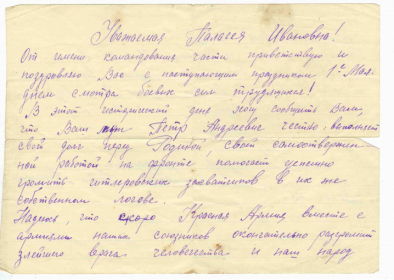 Уважаемая Палагея Ивановна!
От имени командования части приветствую и
поздровляю Вас с наступающим праздником 1ое Мая-
днем смотра боевых сил трудящихся!
В этот исторический день хочу сообщить Вам,
что Ваш Петр Андреевич честно выполняет
свой долг перед Родиной, своей самоотвержен-
ной работой на фронте помогает успешно
громить гитлеровских захватчиков в их же
собственном логове.
Надеюсь, что скоро Красная Армия вместе с
армиями наших союзников окончательно разгромит
злейшего врага человечества и наш народ